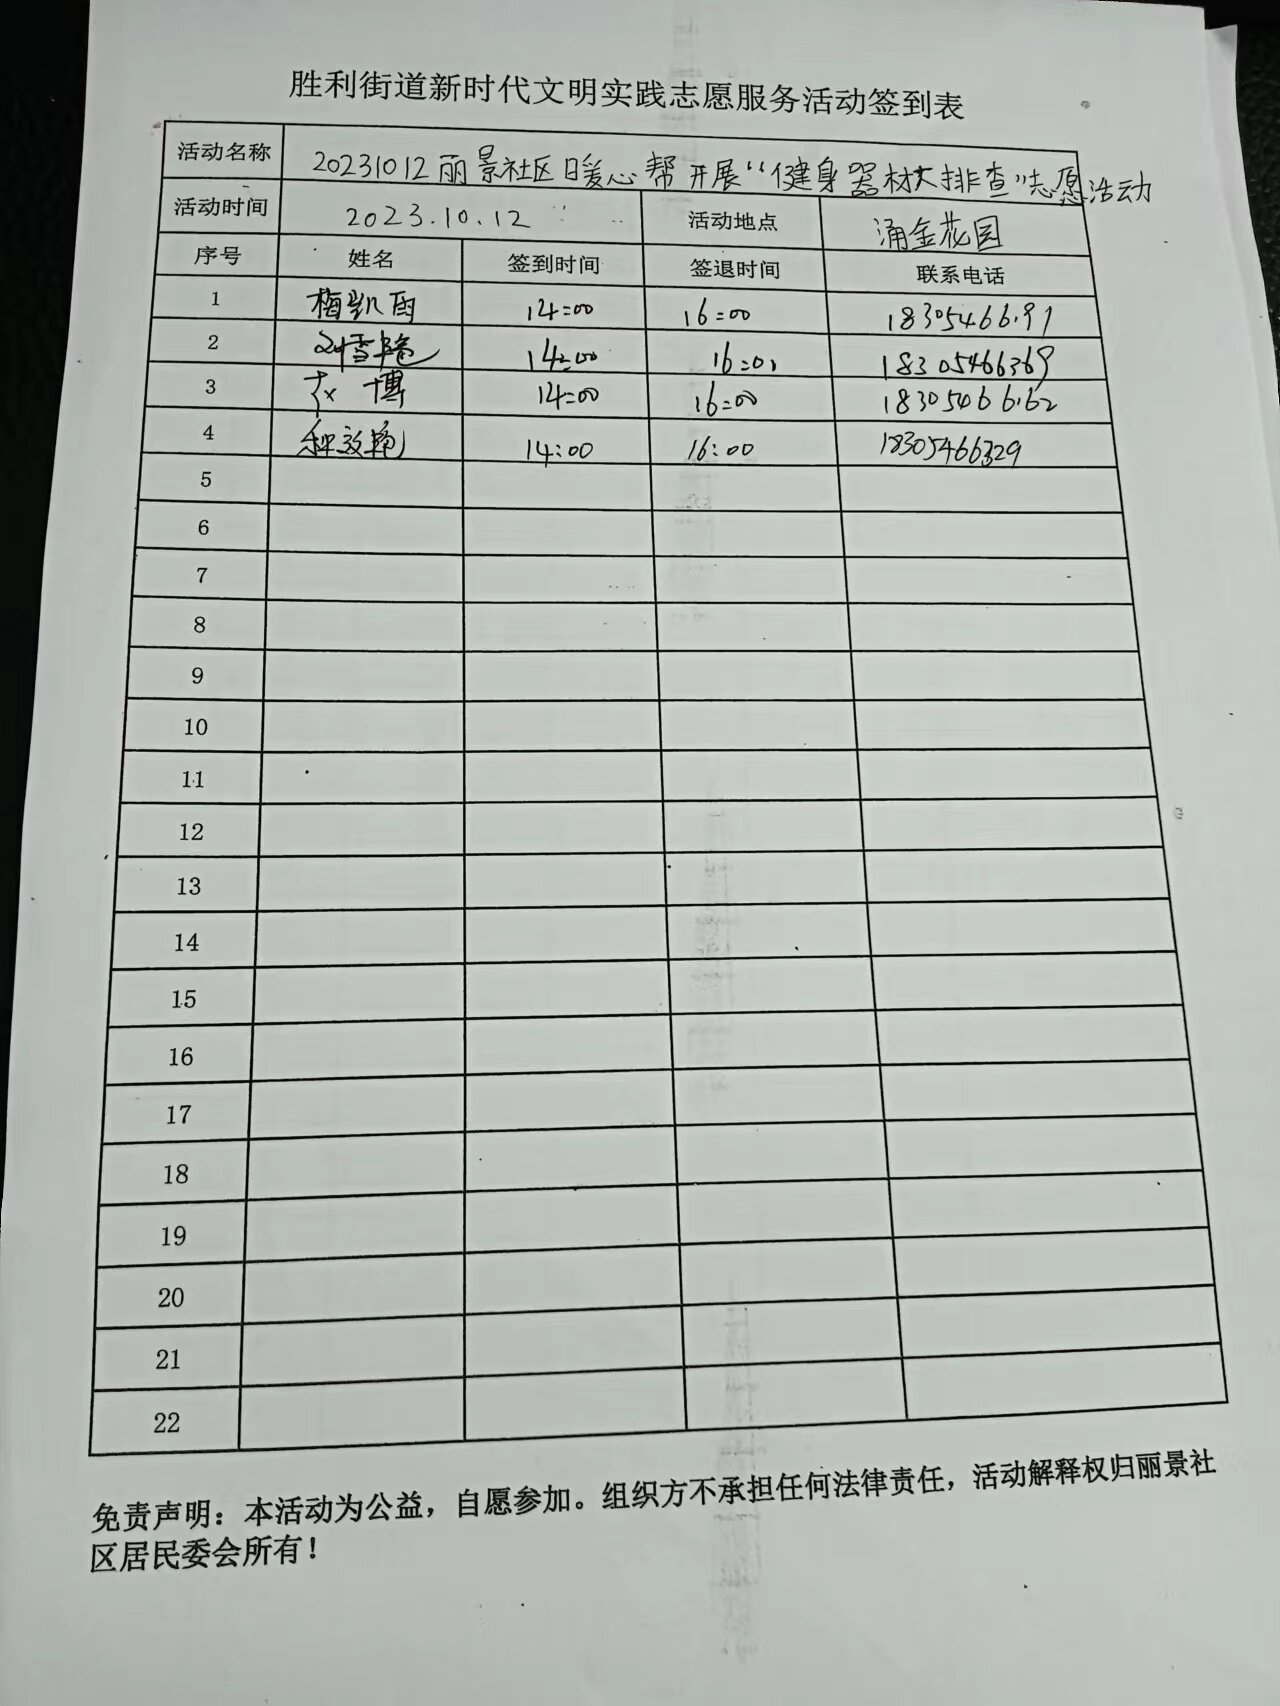 胜利街道新时代文明实践志愿服务活动签到表
活动名称 20231012丽景社区暖心帮开展“健身器材大排查”志愿活动
活动时间 2023.10.12 活动地点 涌金花园
序号 姓名 签到时间 签退时间 联系电话
1 梅凯雨 14:00 16:00 18305466191
2 14:00 16:00 18305466369
3 博 14:00 16:00 18305466162
4 种效艳 14:00 16:00 18305466329
5
6
7
8
9
10
11
12
13
14
15
16
17
18
19
20
21
22
免责声明：本活动为公益，自愿参加。组织方不承担任何法律责任，活动解释权归丽景社
区居民委会所有！